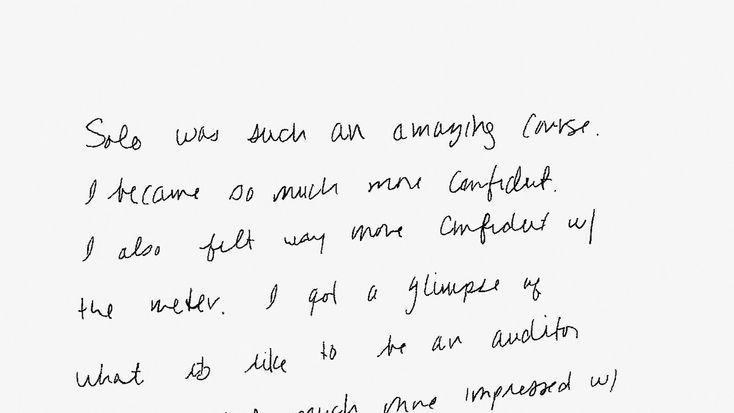 Solo was such an amazing course.
I became so much more confident.
I also felt way more confident w/
the meter. I got a glimpse of
what it's like to be an auditor
much more impressed w/